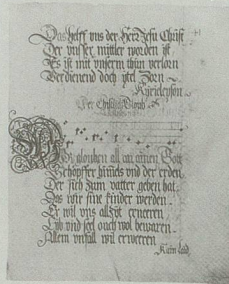 Das helff vns der Herr Jesu Christ
Der vnser mittler worden ist
Es ist mit vnserm thun verlorn
Verdienend doch ytel Zorn
Kyrieleyson
Der Christlich Gloub
Wir glouben all an einen Gott
Schöpffer himels vnd der erden
Der sich zum vatter geben hat
Das wir sine kinder werden
Er wil vns allzyt erneeren
Lyb vnd seel ouch wol bewaren
Allem vnfall wil er weeren
Kein leid